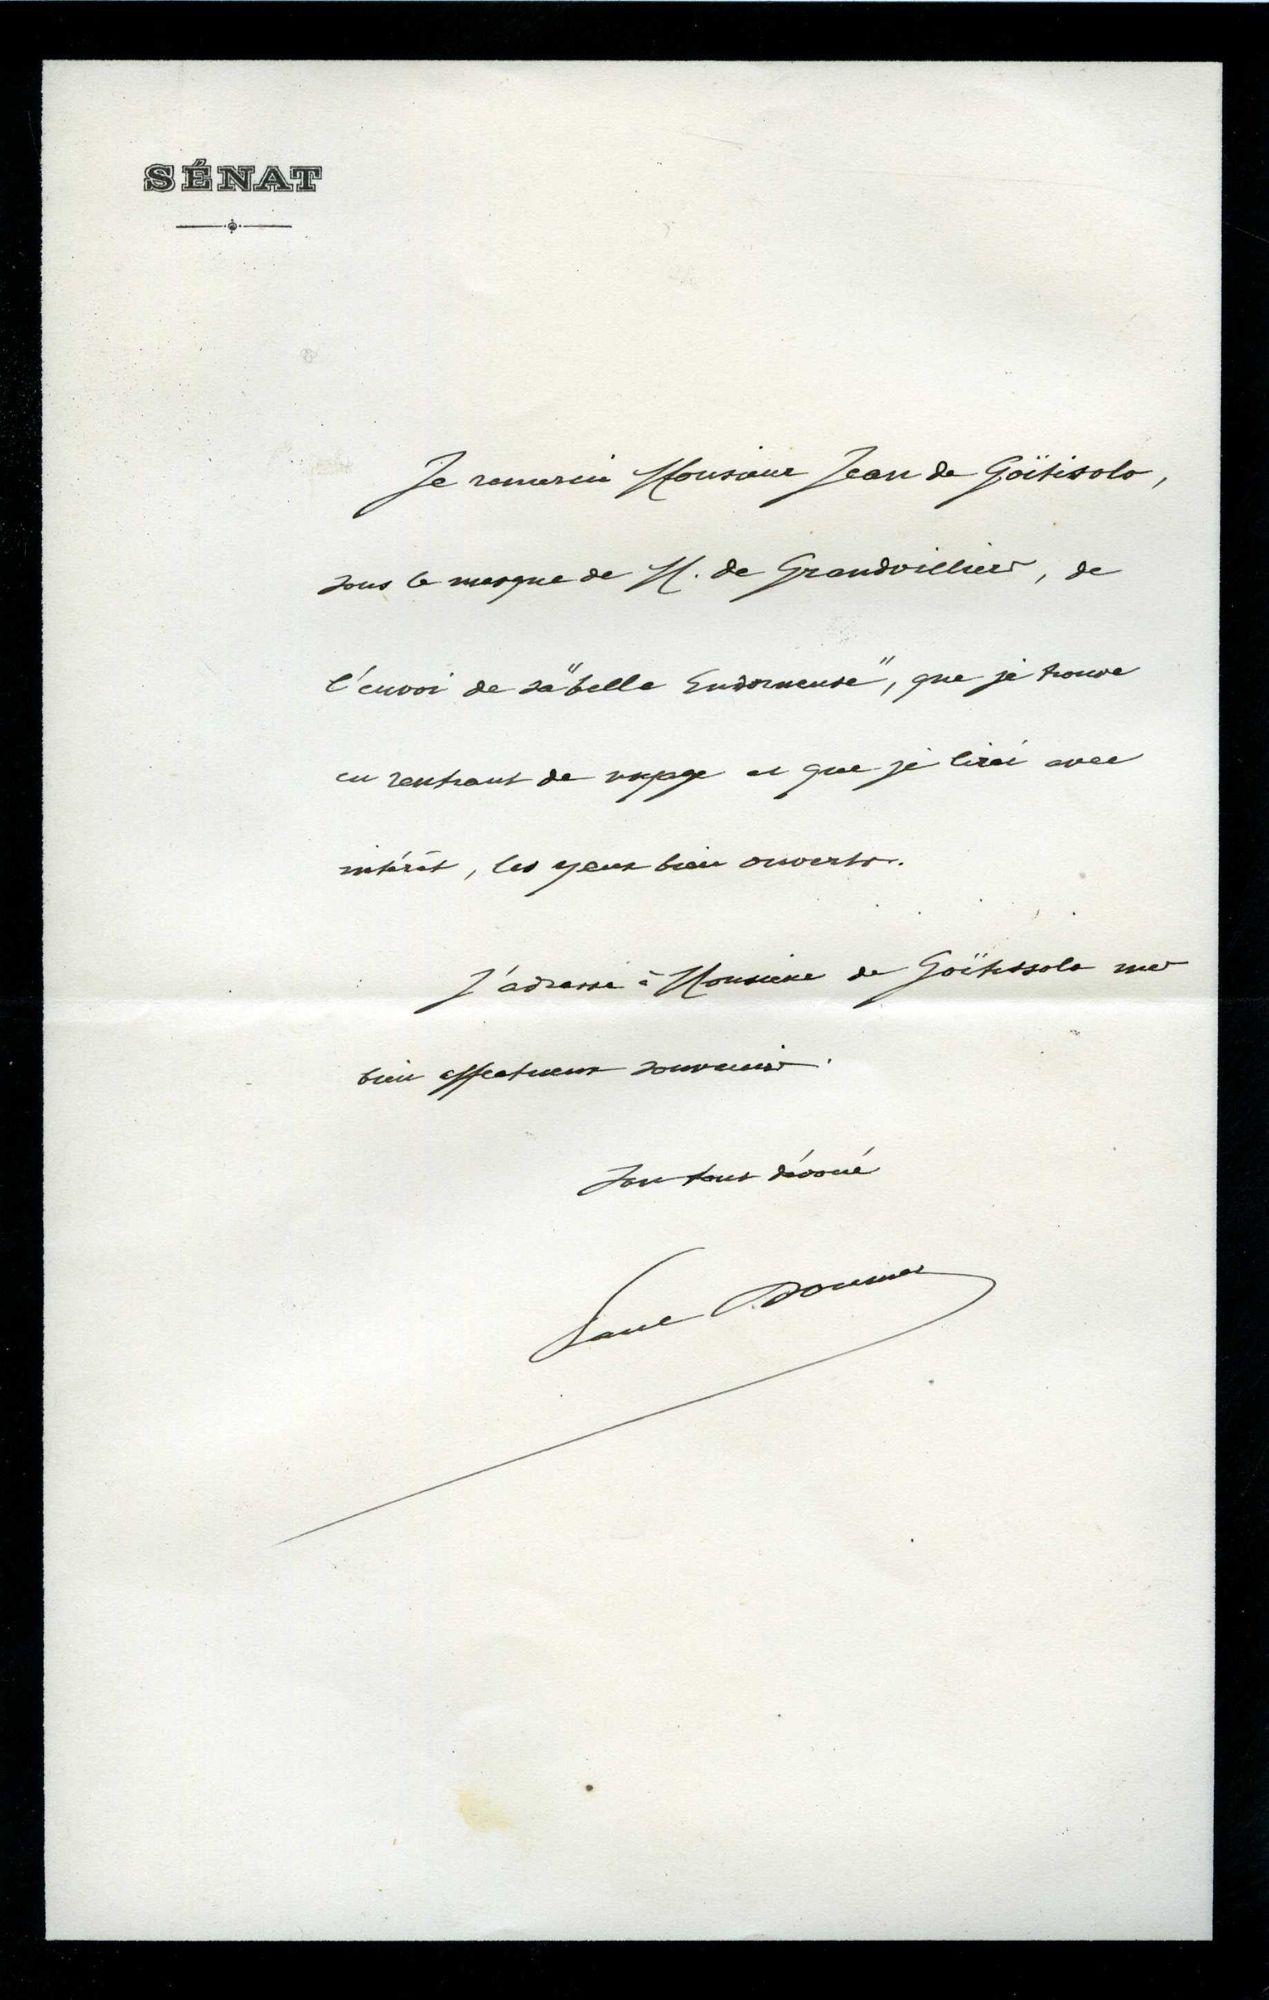 SÉNAT
Je remercie Monsieur Jean de Goïtisolo,
sous le masque de M. de Grandvilliers, de
l'envoi de sa "belle Endormeuse", que je trouve
en rentrant de voyage et que je lirai avec
intérêt, les yeux bien ouverts.
J'adresse à Monsieur de Goïtissolo mes
bien affectueux souvenirs.
Son tout dévoué
Paul Doumer